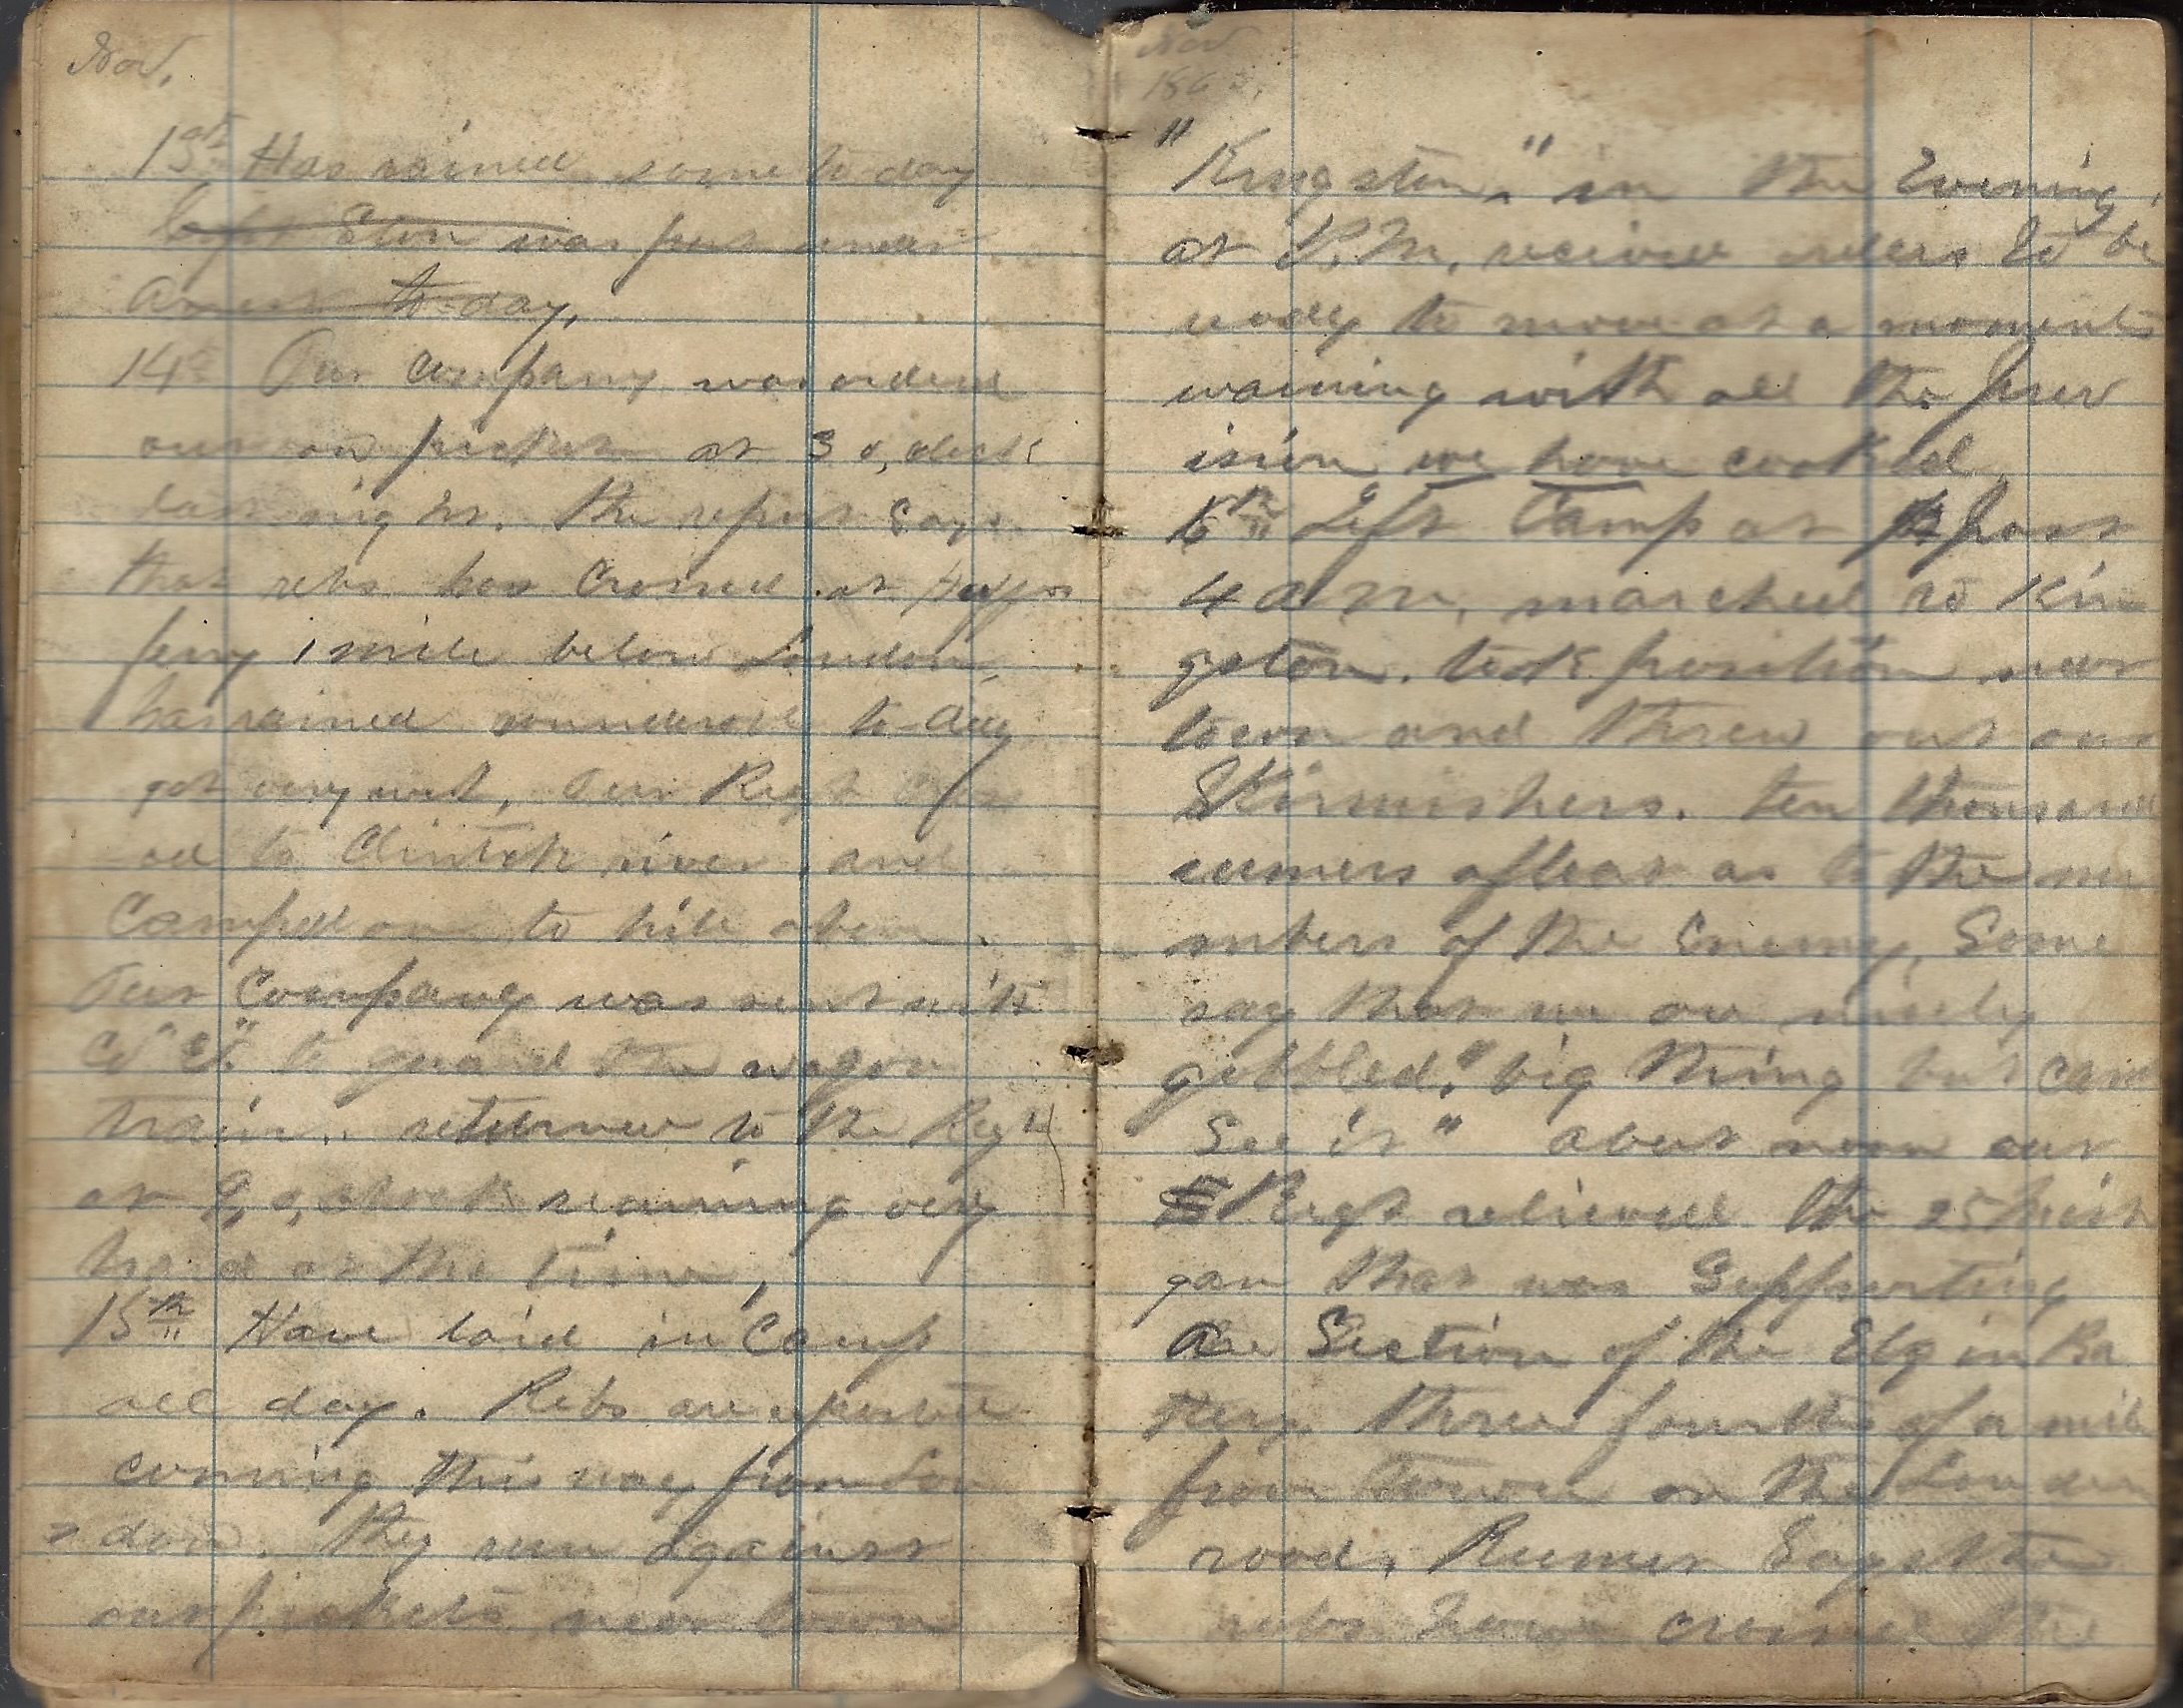 Nov.
13th Has rained some to day
Capt was put under
arrest to-day,
14th Our Company was orderd
out on picket at 3 o,clock
last night. The report says
that rebs has Crossed at
ferry 1 mile below Loudon,
has rained to-day
got very wet, Our Regt
ed to Clinton river and
Camped on to hill above.
Our Company was sent with
Co "E" to guard the wagon
train. returned to the Regt
at 9 o,clock raining very
hard at the time,
15th Have laid in Camp
all day. Rebs are reported
coming this way from Lou
= don. They run against
our pickets near town
Nov
186
"Kingston," in the Evening,
at P.M, recived orders to be
ready to move at a moments
warning with all the prov
ision we have cooked,
16th Left Camp at past
4 a m, marched to Kin
gston. took position near
town and threw out our
Skirmishers. ten thousand
rumers afloat as to the nu
mbers of the Enemy, Some
say that we are nicely
gobbled," big thing but cant
See it" about noon our
Regt relieved the 25 Mich
gan that was Supporting
a Section of the Elgin Ba
ttery three fourths of a mile
from town on the Loudon
road, Rumer Says the
rebs have crossed the